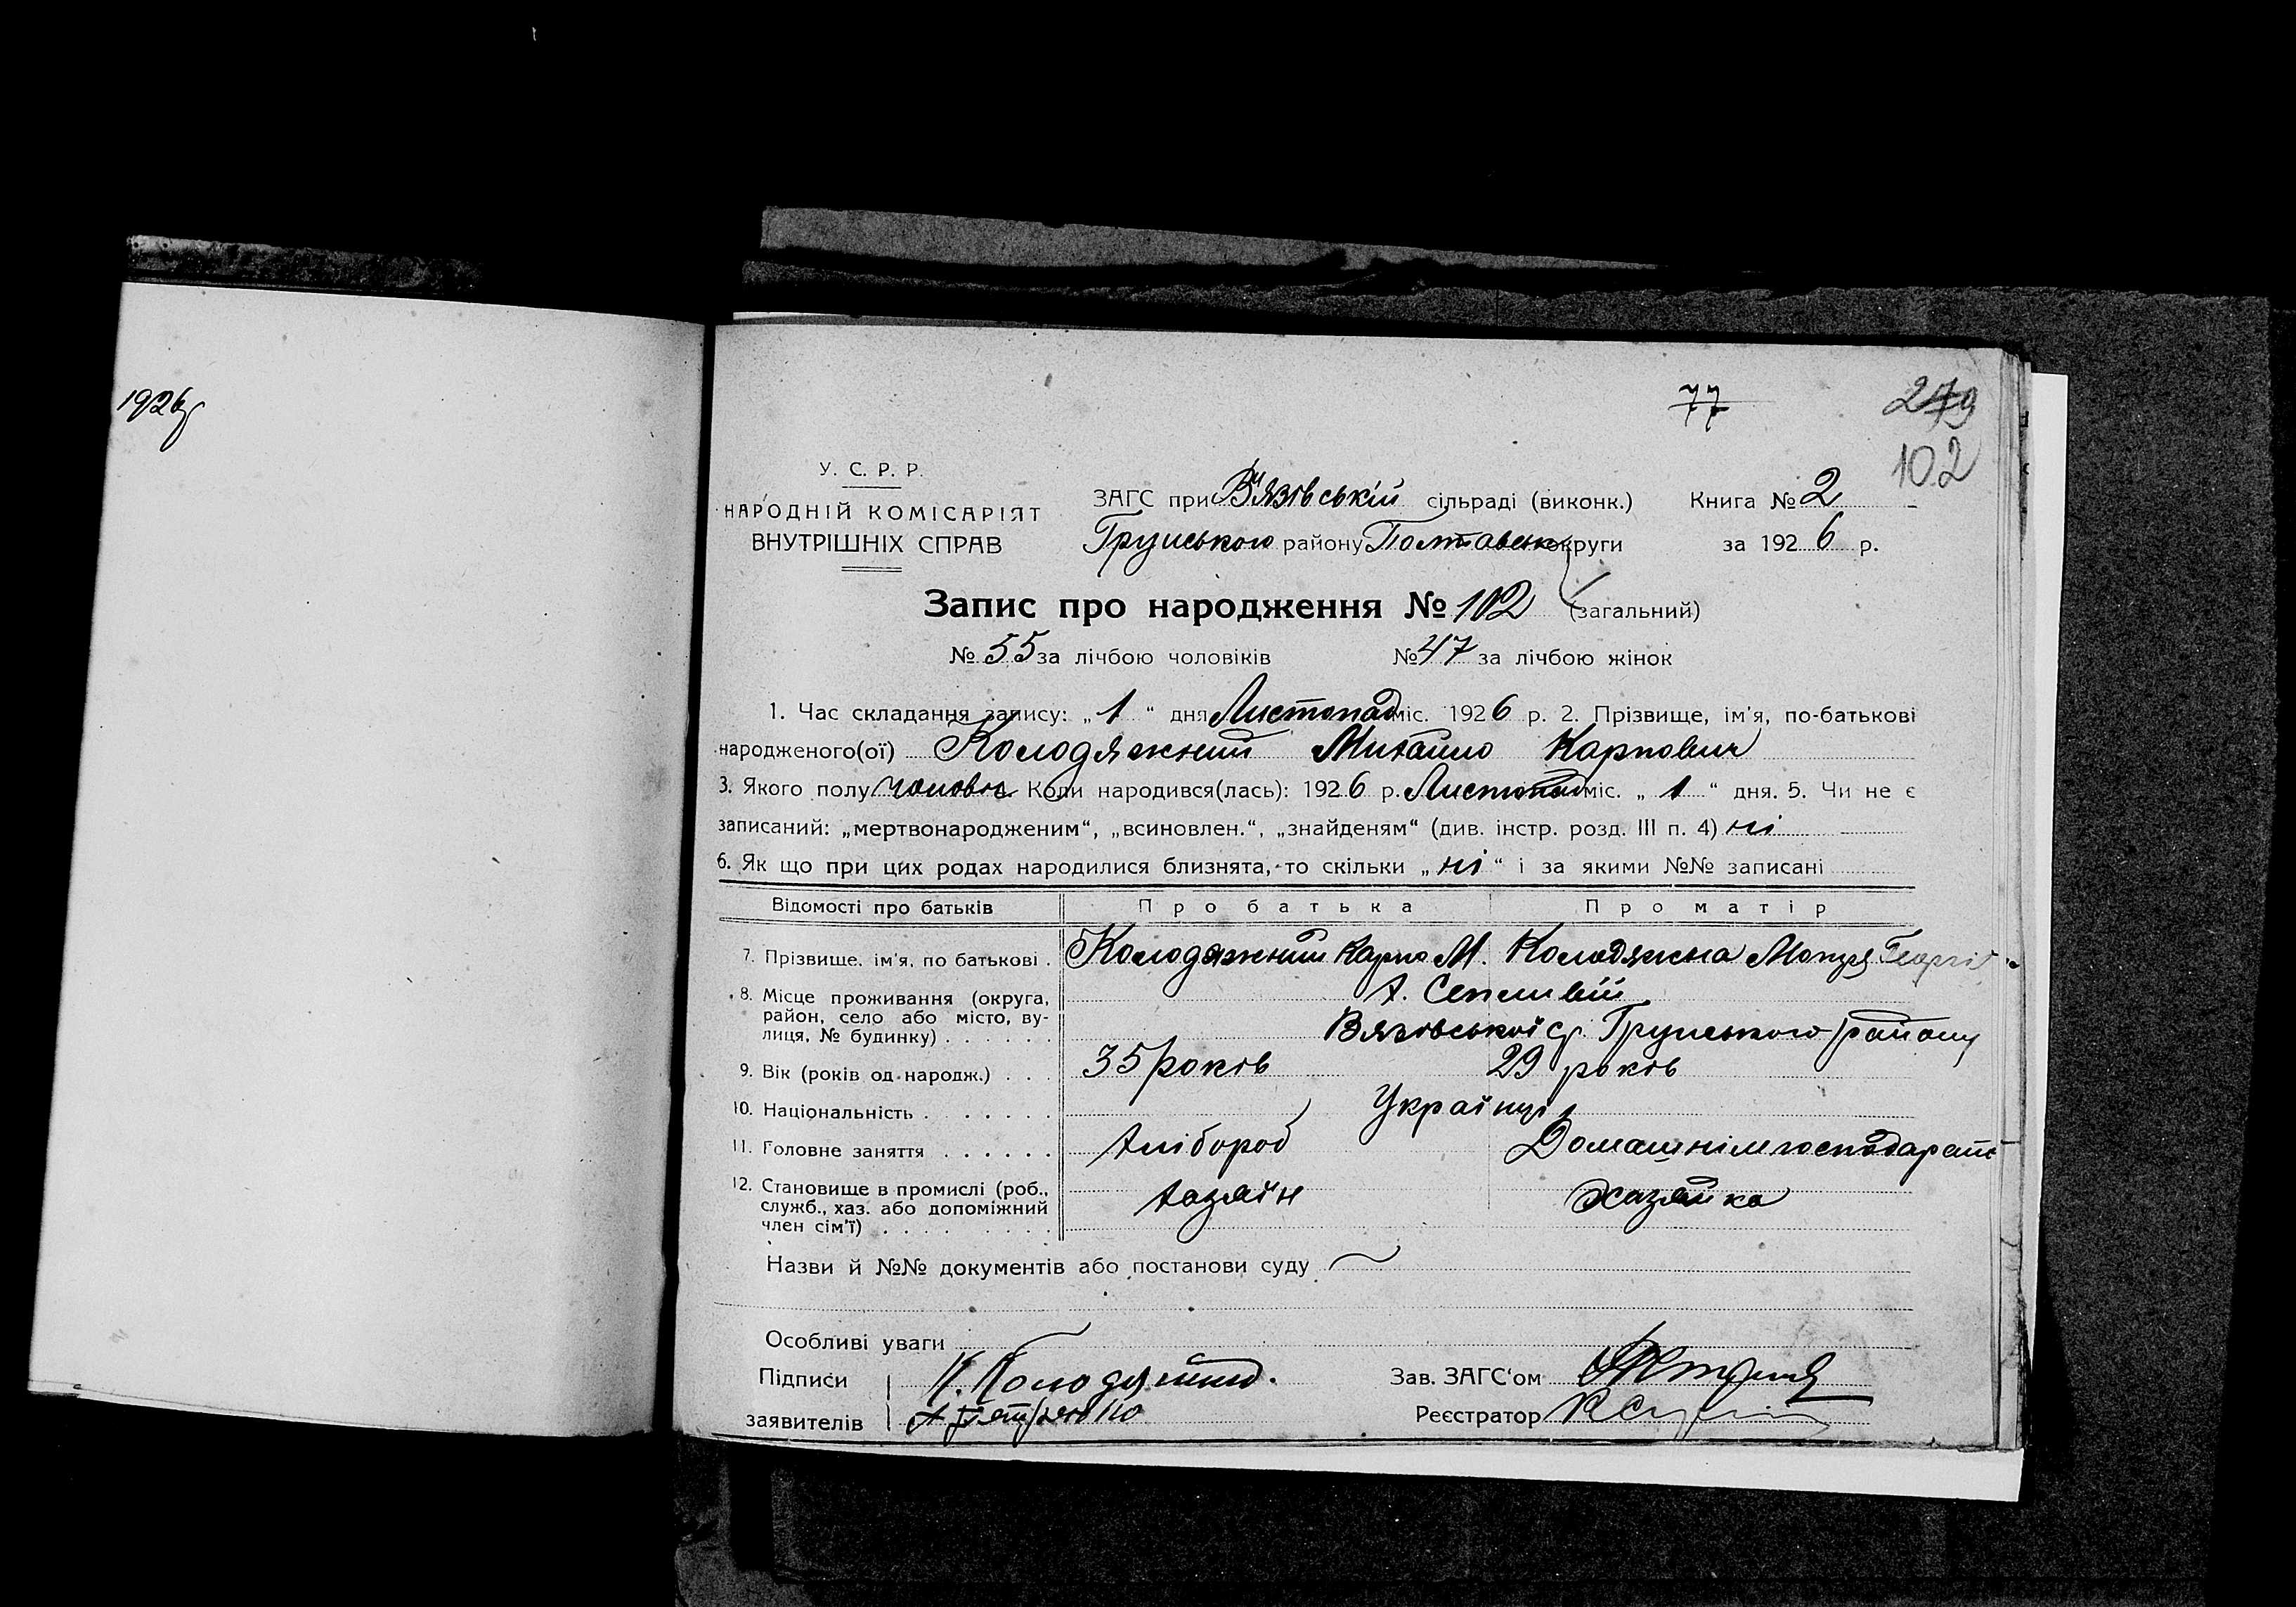 1926 р
77
279
102
У. С. Р. Р.
НАРОДНІЙ КОМІСАРІЯТ
ВНУТРІШНІХ СПРАВ
ЗАГС при В'язівській сільраді (виконк.) Книга № 2
Грунського району Полтавськ округи за 1926 р.
Запис про народження № 102 (загальний)
№ 55 за лічбою чоловіків № 47 за лічбою жінок
1. Час складання запису: „ 1 “ дня Листопад міс. 1926 р. 2. Прізвище, ім'я, по-батькові
народженого(ої) Колодяжний Михайло Карпович
3. Якого полу чоловіч. Коли народився(лась): 1926 р. Листопад міс. „ 1 “ дня. 5. Чи не є
записаний: „мертвонародженим“, „всиновлен.“, „знайденям“ (див. інстр. розд. III п. 4) ні
6. Як що при цих родах народилися близнята, то скільки „ ні “ і за якими №№ записані
Відомості про батьків Про батька Про матір
7. Прізвище, ім'я, по батькові . Колодяжний Карпо М. Колодяжна Мотря Георгів
8. Місце проживання (округа,
район, село або місто, ву-
лиця, № будинку) . . . . . .
х.
Вязовської с/р. Грунського району
9. Вік (років од народж.) . . . 35 років 29 років
10. Національність . . . . . . . Українці
11. Головне заняття . . . . . . хлібороб Домашнім господарст
12. Становище в промислі (роб.,
служб., хаз. або допоміжний
член сім'ї) . . . . . . . .
хазяїн хазяйка
Назви й №№ документів або постанови суду
Особливі уваги
Підписи К. Колодяжний. Зав. ЗАГС'ом
заявителів Реєстратор